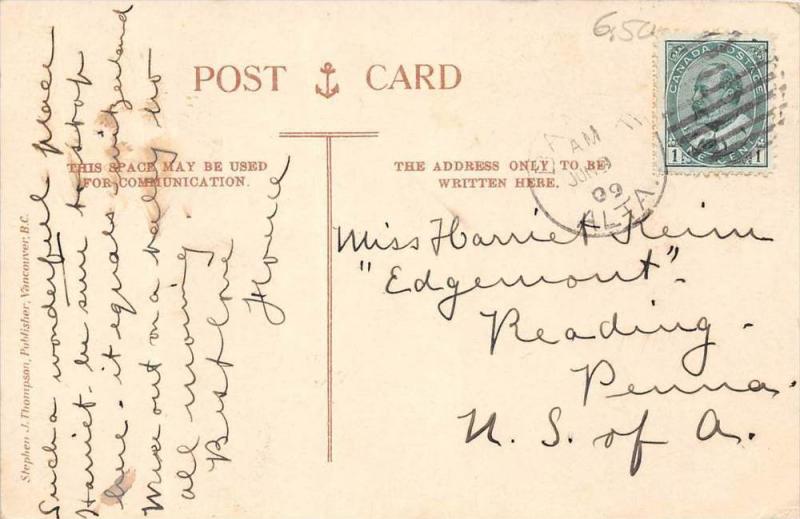 6.50
POST CARD
THIS SPACE MAY BE USED
FOR COMMUNICATION.
THE ADDRESS ONLY TO BE
WRITTEN HERE.
CANADA POSTAGE
1 ONE CENT 1
AM
JUN
09
ALTA.
Such a wonderful place
Harriet. be sure to stop
here. it equals Switzerland
Were out on a tally ho
all morning.
Best love
Miss Harriet Keim
"Edgemont".
Reading.
Penna.
U. S. of A.
Stephen J. Thompson, Publisher, Vancouver, B.C.